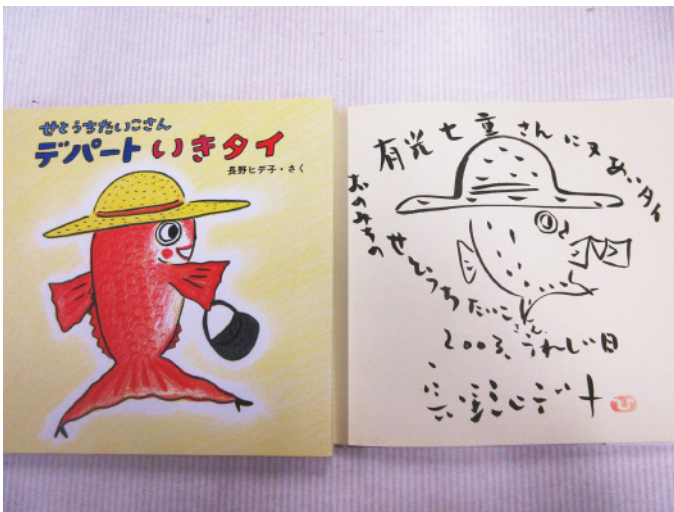 せとうちたいこさん
デパートいきタイ
長野ヒデ子・さく
有光七童さんにヌあいタイ
おのみちの
せとうちたいこ
さん
2003、うれしい日